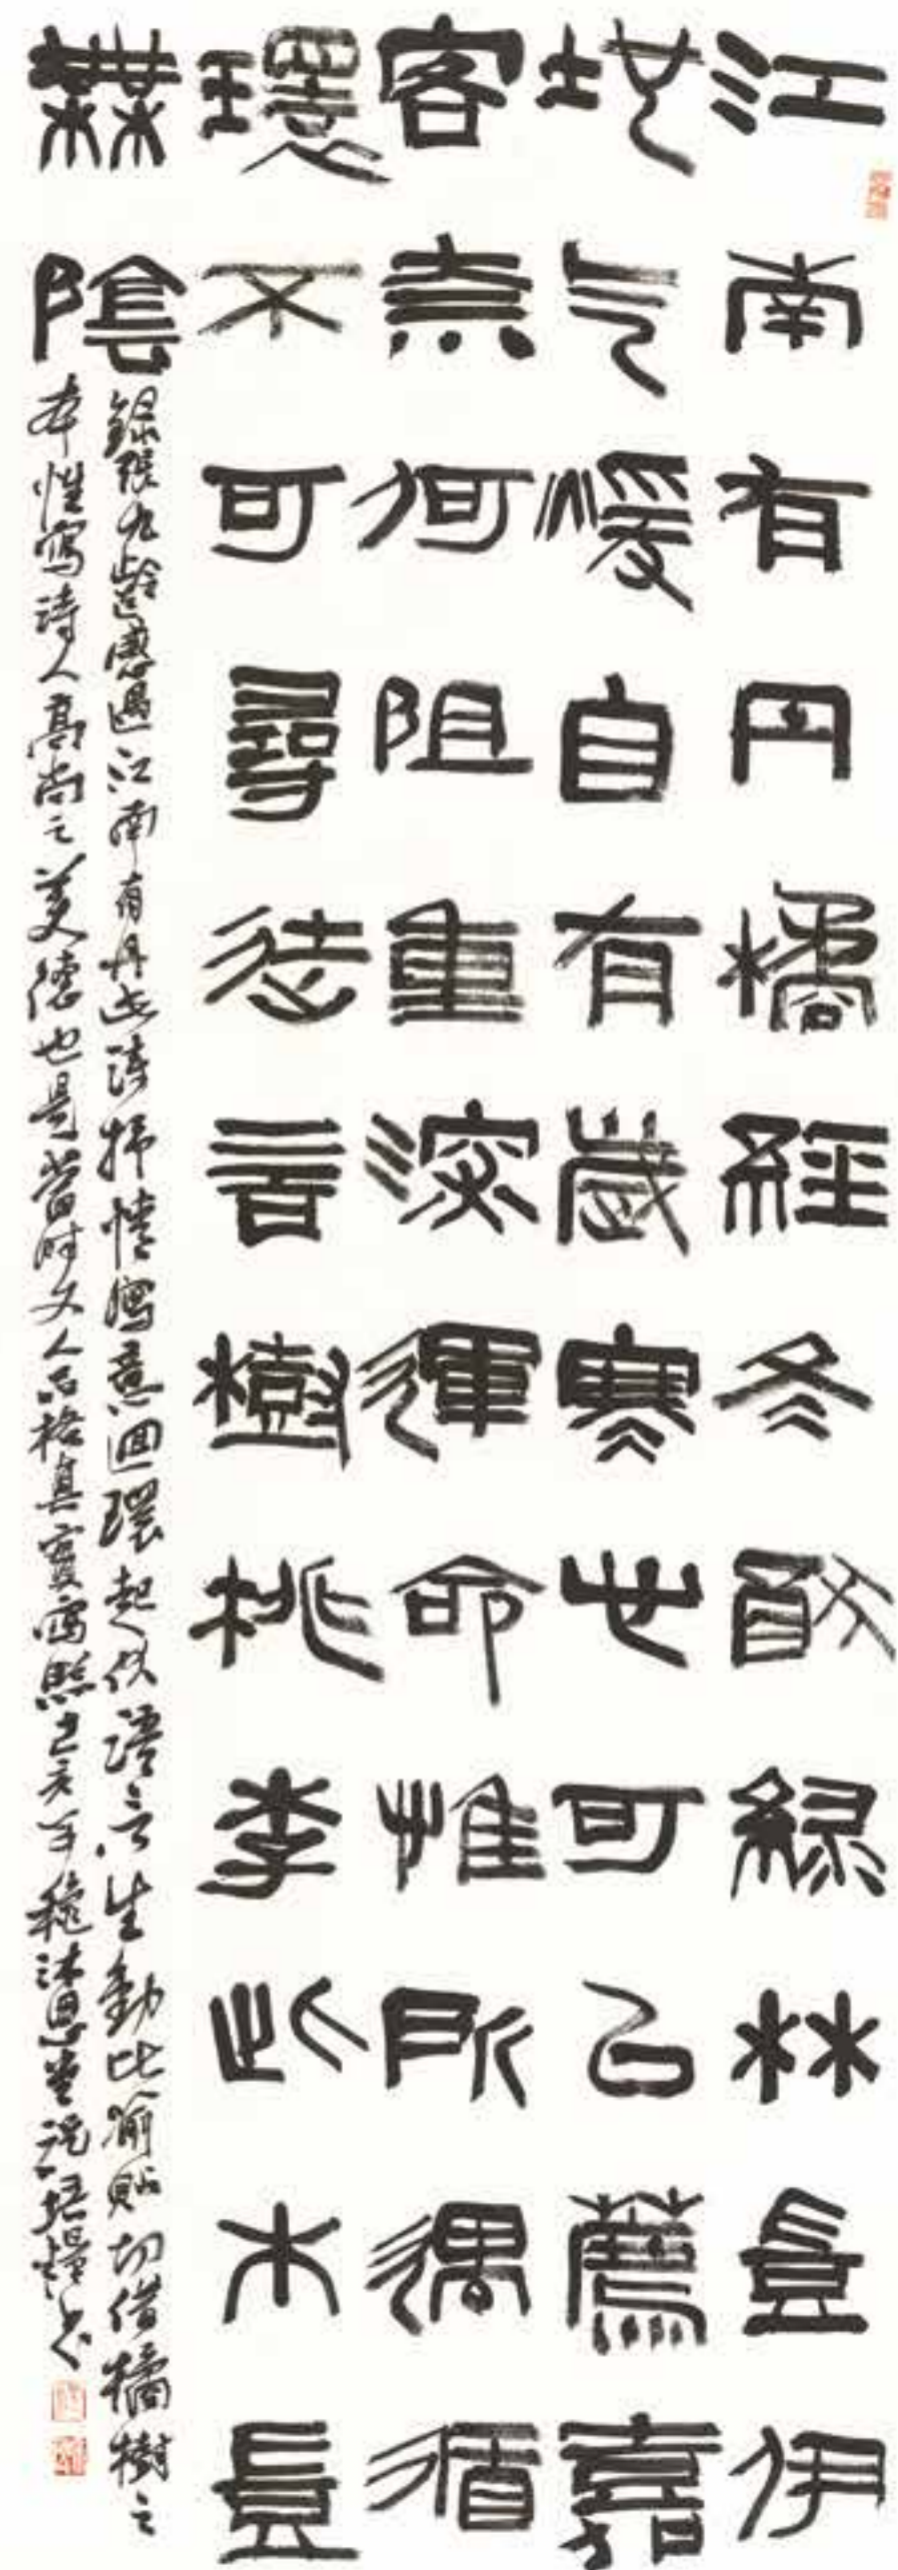 江南有丹橘經冬猶綠林豈伊
地气煖自有歲寒心可以薦嘉
客奈何阻重深運命惟所遇循
環不可尋徒言樹桃李此木豈
無陰
錄張九齡感遇江南有丹此詩抒情寫意迴環起伏語言生動比喻貼切借橘樹之
本性寫詩人高尚之美德也是當時文人品格真實寫照己亥年穐沐恩堂培書